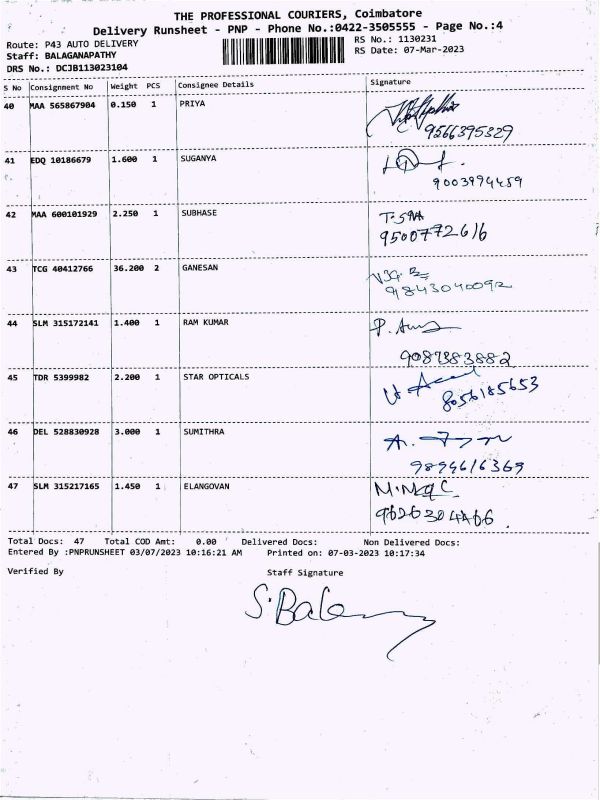 THE PROFESSIONAL COURIERS, Coimbatore
Delivery Runsheet - PNP - Phone No.:0422-3505555 - Page No.:4
Route: P43 AUTO DELIVERY RS No.: 1130231
Staff: BALAGANAPATHY RS Date: 07-Mar-2023
DRS No.: DCJB113023104
S No Consignment No Weight PCS Consignee Details Signature
40 MAA 565867904 0.150 1 PRIYA
9566395329
41 EDQ 10186679 1.600 1 SUGANYA
9003994459
42 MAA 600101929 2.250 1 SUBHASE
9500772616
43 TCG 40412766 36.200 2 GANESAN
9843040092
44 SLM 315172141 1.400 1 RAM KUMAR
9087883882
45 TDR 5399982 2.200 1 STAR OPTICALS
8056185653
46 DEL 528830928 3.000 1 SUMITHRA
9894616369
47 SLM 315217165 1.450 1 ELANGOVAN
Total Docs: 47 Total COD Amt: 0.00 Delivered Docs: Non Delivered Docs:
Entered By :PNPRUNSHEET 03/07/2023 10:16:21 AM Printed on: 07-03-2023 10:17:34
Verified By Staff Signature